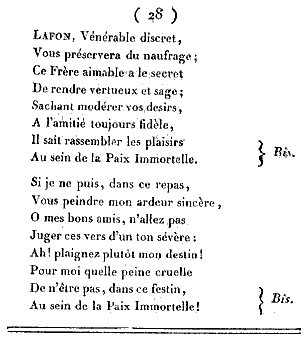 ( 28 )
LAFON, Vénérable discret,
Vous préservera du naufrage ;
Ce Frère aimable a le secret
De rendre vertueux et sage ;
Sachant modérer vos desirs,
A l'amitié toujours fidèle,
Il sait rassembler les plaisirs
Au sein de la Paix Immortelle.
} Bis.
Si je ne puis, dans ce repas,
Vous peindre mon ardeur sincère,
O mes bons amis, n'allez pas
Juger ces vers d'un ton sévère :
Ah! plaignez plutôt mon destin!
Pour moi quelle peine cruelle
De n'être pas, dans ce festin,
Au sein de la Paix Immortelle!
} Bis.